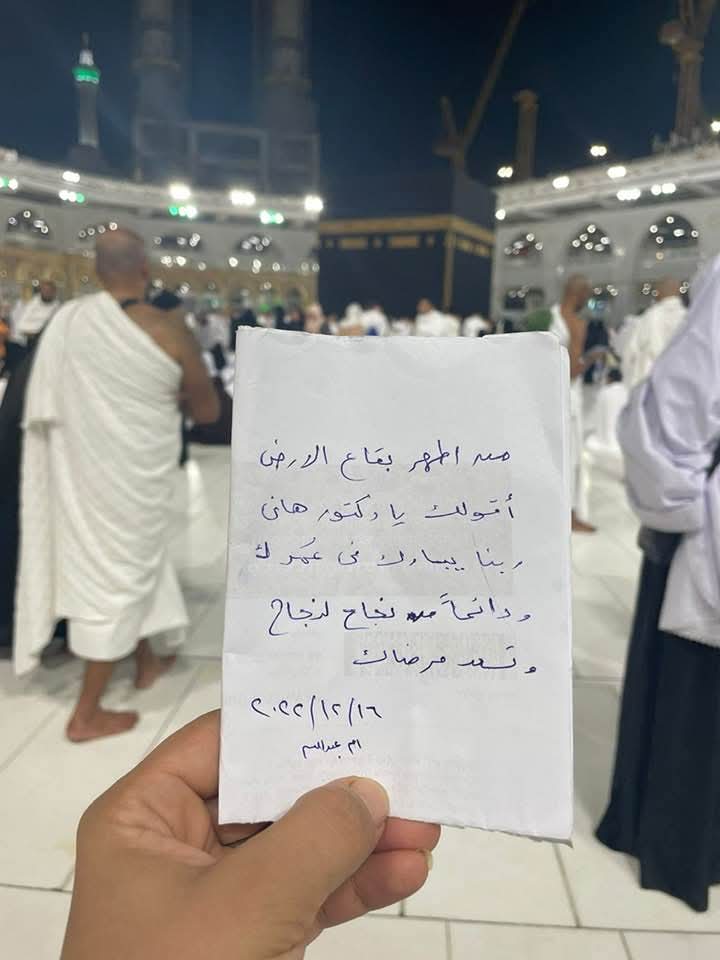 من اطهر بقاع الارض
أقولك يا دكتور هانى
ربنا يبارك فى عمرك
ودائماً من نجاح لنجاح
وتسعد مرضاك
٢٠٢٢/١٢/١٦
ام عبدالله